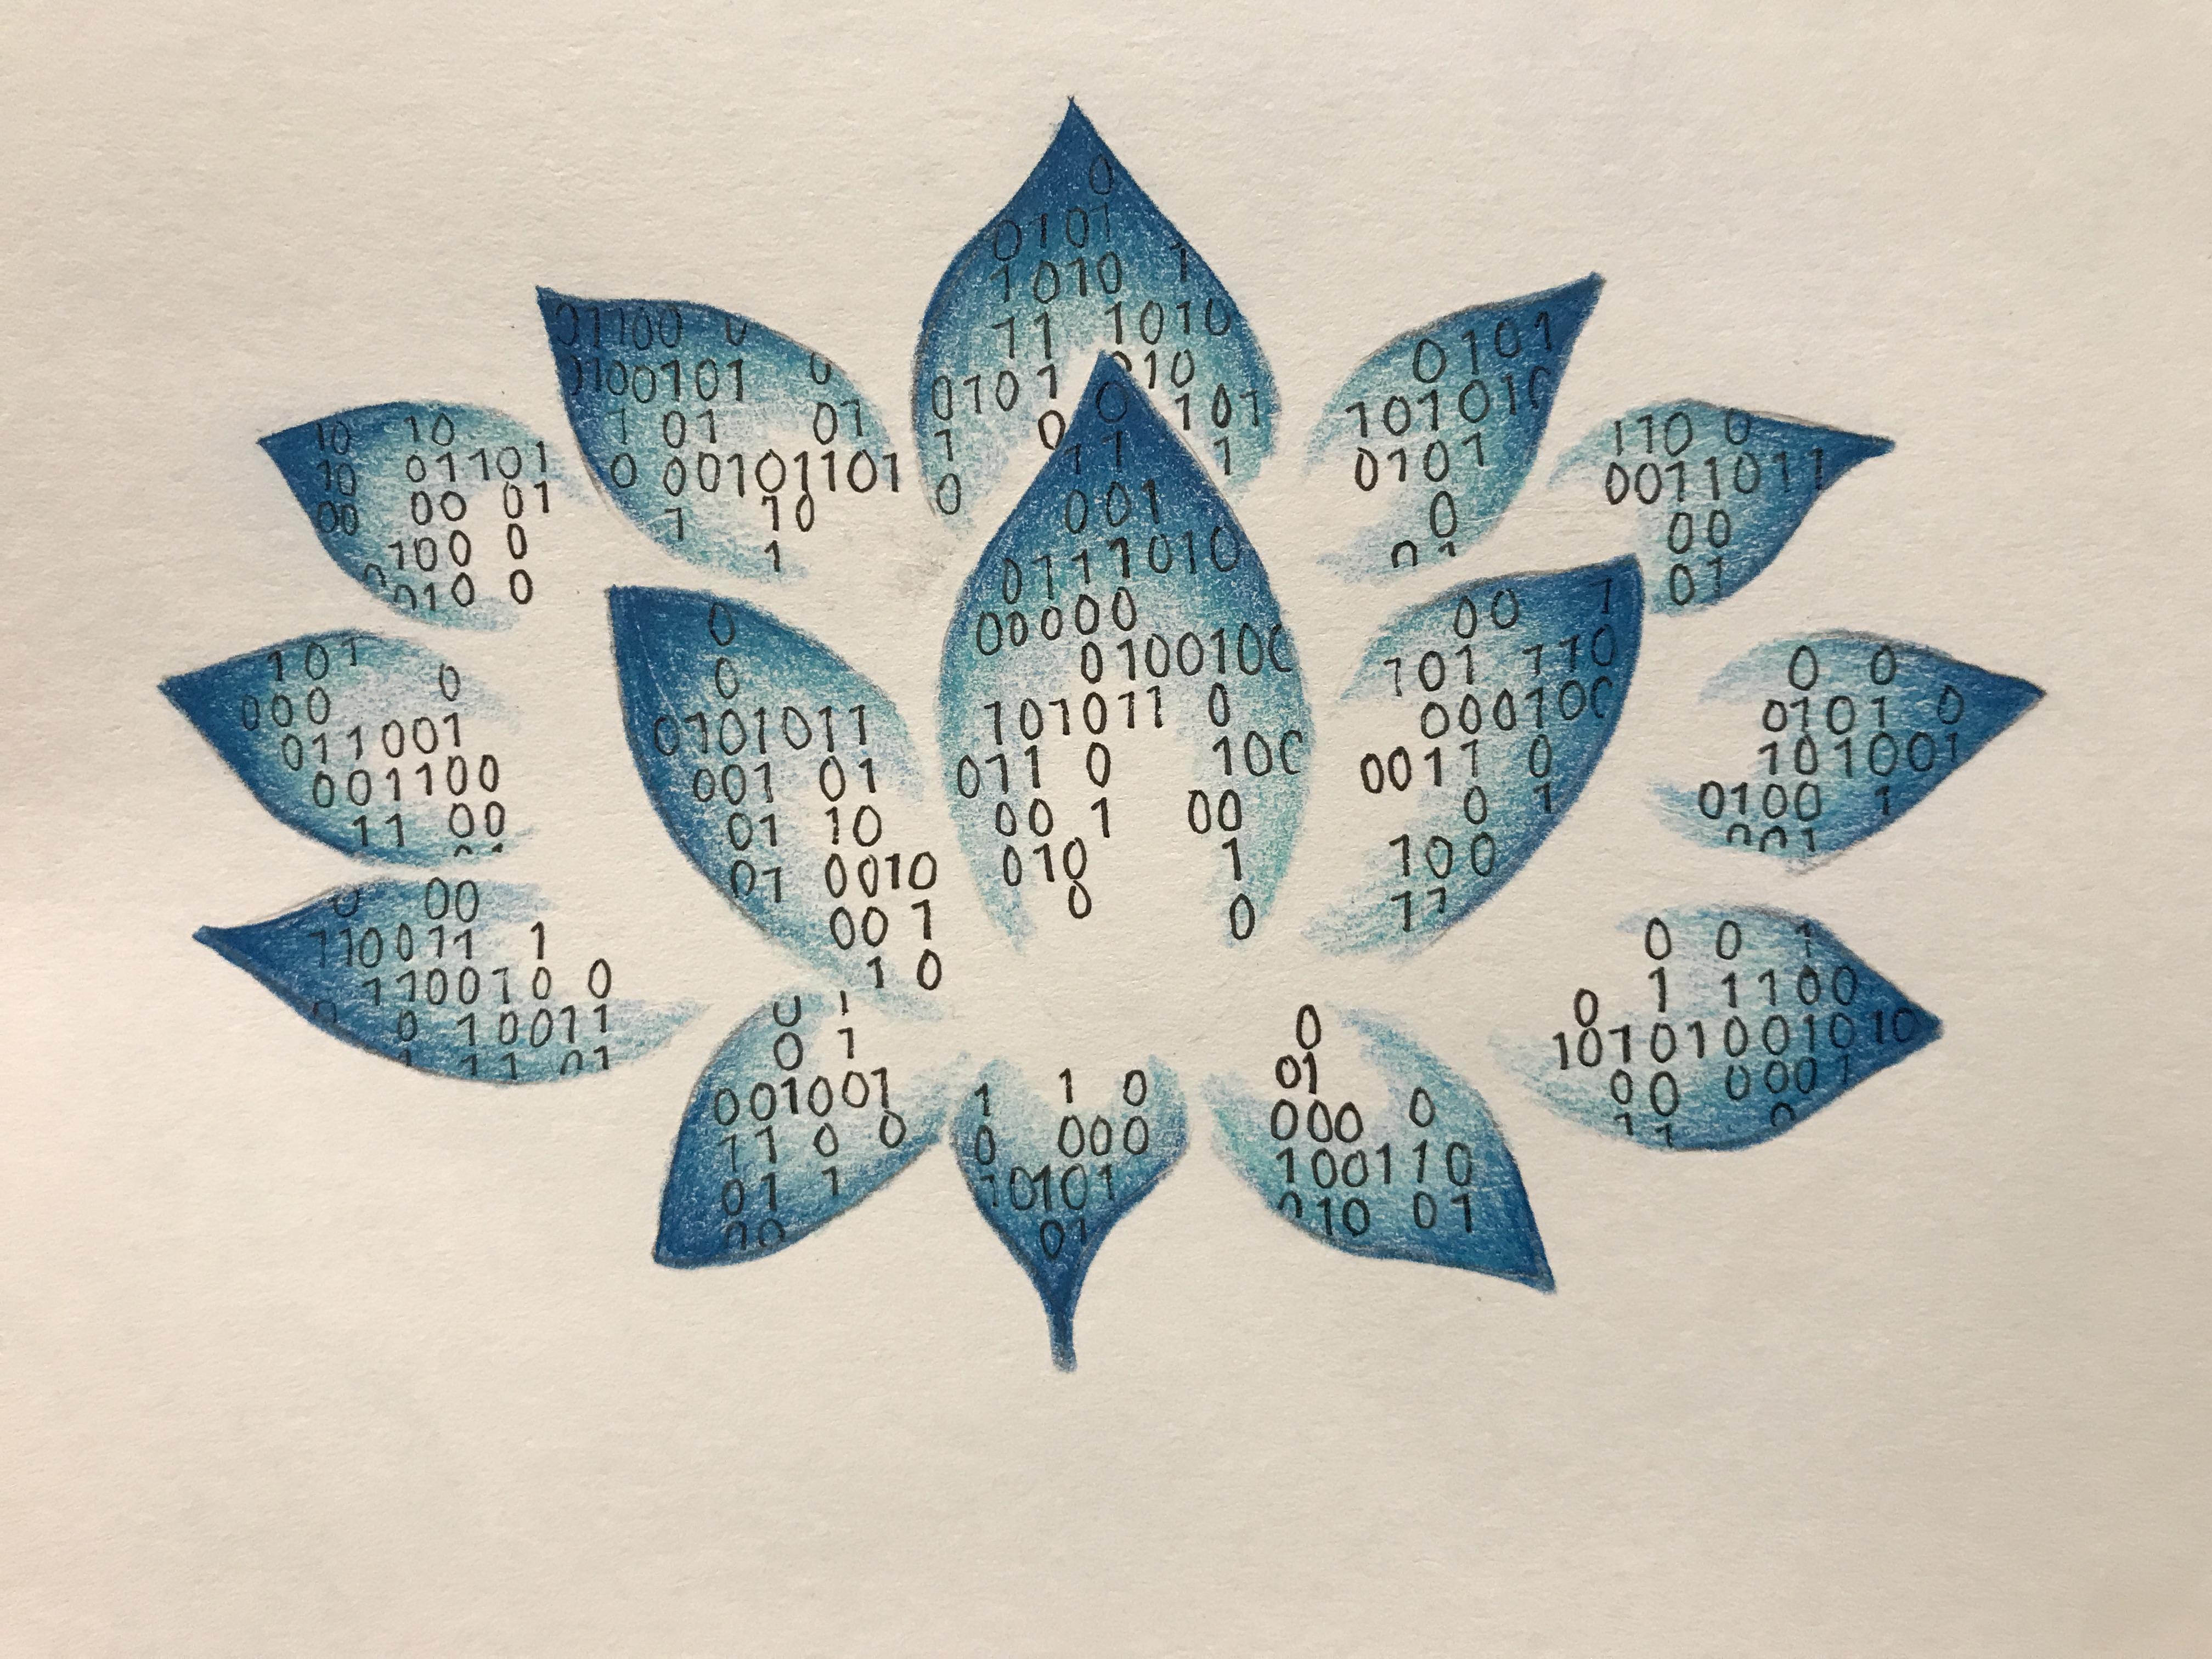 0
0101
1010 1
11 1010
0101 010
1 0 101
0 1
01100 0
0100101 0
1 01 01
0 00101101
1 10
1
0101
101010
0101
0
01
10 10
10 01101
00 00 01
100 0
010 0
110 0
0011011
00
01
0
11
001
0111010
00000
010010
101011 0
011 0 100
00 1 00
010 1
0 0
101
000 0
011001
001100
11 00
0
0
0101011
001 01
01 10
01 0010
00 1
1 0
00 1
101 110
000100
0011 0
0 1
100
11
0 0
0101 0
101001
0100 1
001
0 00
110011 1
110010 0
0 10011
1 11 01
0 0 1
0 1 1100
10101001010
00 0001
11 0
0 1
0 1
001001
11 0 0
01 1
00
1 1 0
0 000
10101
01
0
01
000 0
100110
010 01